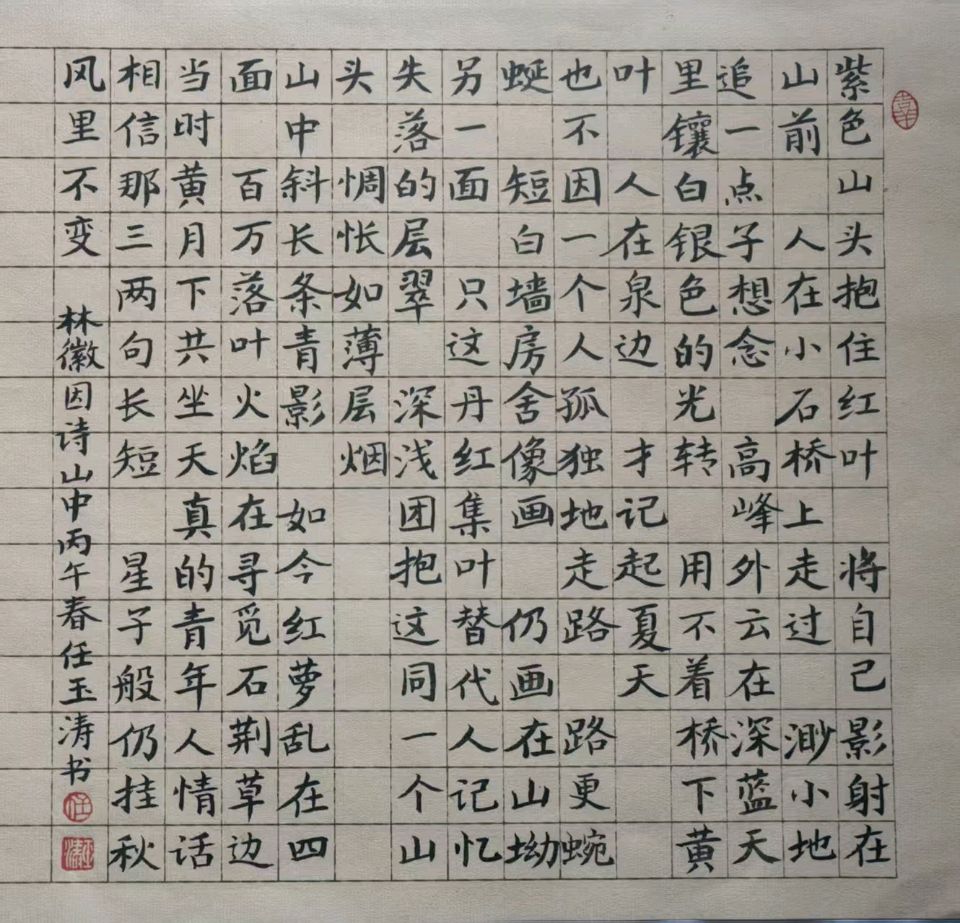 紫色山头抱住红叶 将自己影射在
山前 人在小石桥上走过 渺小地
追一点子想念 高峰外云在深蓝天
里镶白银色的光转 用不着桥下黄
叶 人在泉边 才记起夏天
也不因一个人孤独地走路 路更蜿
蜒 短白墙房舍像画 仍画在山坳
另一面 只这丹红集叶替代人记忆
失落的层翠 深浅团抱这同一个山
头 惆怅如薄层烟
山中斜长条青影 如今红萝乱在四
面 百万落叶火焰在寻觅石荆草边
当时黄月下共坐天真的青年人情话
相信那三两句长短 星子般仍挂秋
风里不变 林徽因诗山中丙午春任玉涛书
任